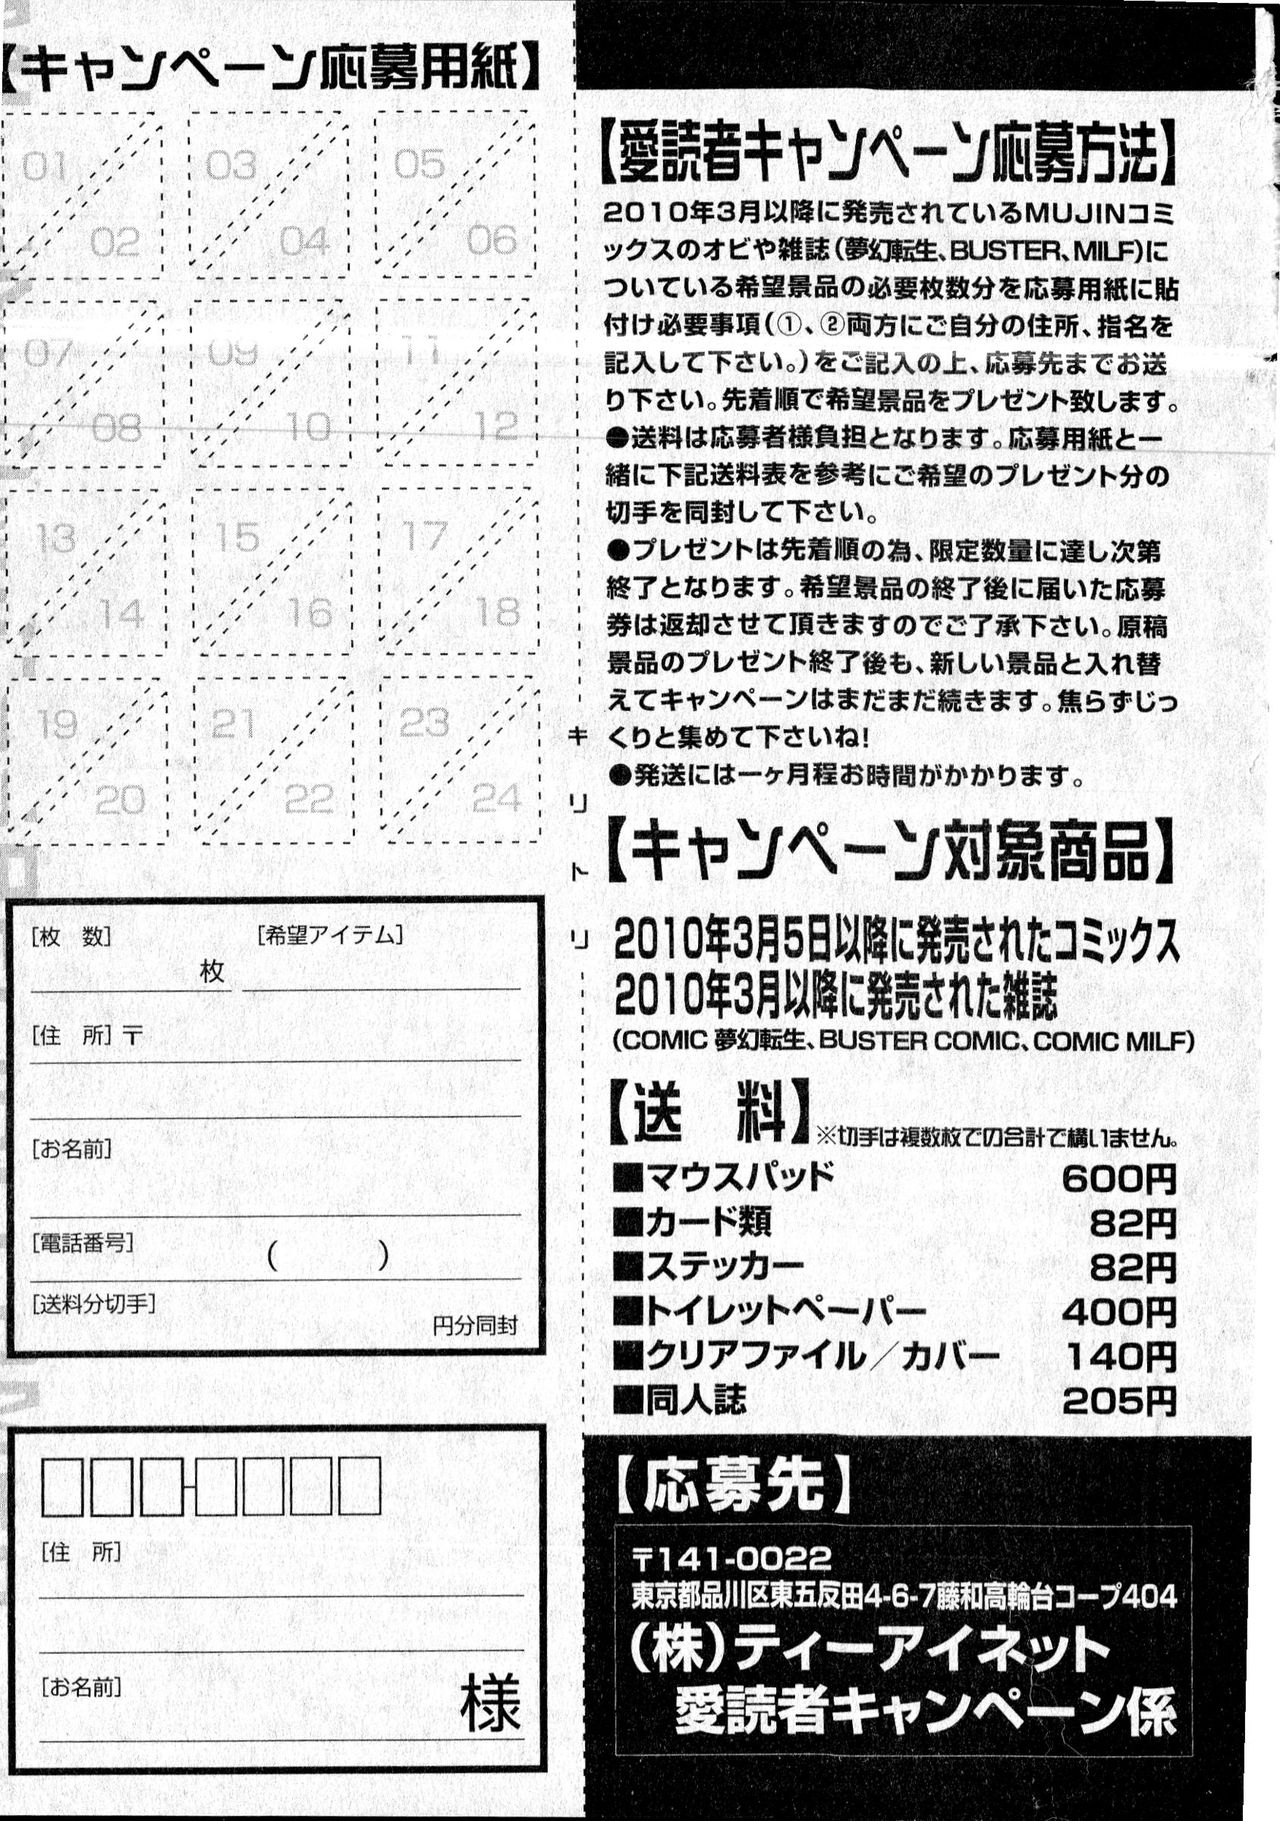 【キャンペーン応募用紙】
01
02
03
04
05
06
07
08
09
10
11
12
13
14
15
16
17
18
19
20
21
22
23
24
[枚　数]
枚
[希望アイテム]
[住　所]〒
[お名前]
[電話番号]
(　　　)
[送料分切手]
円分同封
[住　所]
[お名前]
様
キリトリ
【愛読者キャンペーン応募方法】
2010年3月以降に発売されているMUJINコミ
ックスのオビや雑誌(夢幻転生、BUSTER、MILF)に
ついている希望景品の必要枚数分を応募用紙に貼
付け必要事項(①、②両方にご自分の住所、指名を
記入して下さい。)をご記入の上、応募先までお送
り下さい。先着順で希望景品をプレゼント致します。
●送料は応募者様負担となります。応募用紙と一
緒に下記送料表を参考にご希望のプレゼント分の
切手を同封して下さい。
●プレゼントは先着順の為、限定数量に達し次第
終了となります。希望景品の終了後に届いた応募
券は返却させて頂きますのでご了承下さい。原稿
景品のプレゼント終了後も、新しい景品と入れ替
えてキャンペーンはまだまだ続きます。焦らずじっ
くりと集めて下さいね!
●発送には一ヶ月程お時間がかかります。
【キャンペーン対象商品】
2010年3月5日以降に発売されたコミックス
2010年3月以降に発売された雑誌
(COMIC 夢幻転生、BUSTER COMIC、COMIC MILF)
【送　料】※切手は複数枚での合計で構いません。
■マウスパッド 600円
■カード類 82円
■ステッカー 82円
■トイレットペーパー 400円
■クリアファイル／カバー 140円
■同人誌 205円
【応募先】
〒141-0022
東京都品川区東五反田4-6-7藤和高輪台コープ404
(株)ティーアイネット
愛読者キャンペーン係